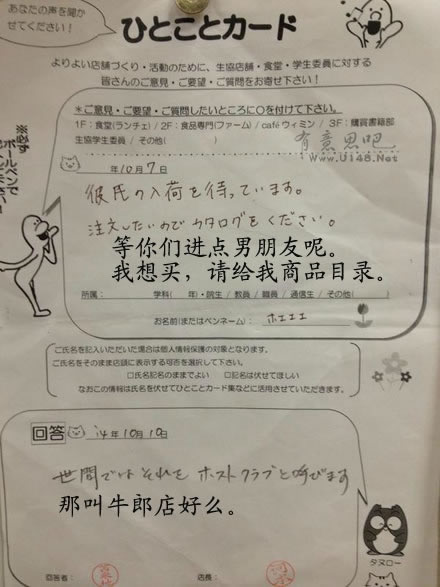 あなたの声を聞か
せてください!
ひとことカード
よりよい店舗づくり・活動のために、生協店舗・食堂・学生委員に対する
皆さんのご意見・ご要望・ご質問をお寄せ下さい!
※必ず
ボールペンで
＊ご意見・ご要望・ご質問したいところに○を付けて下さい。
1F：食堂(ランチェ) / 2F：食品専門(ファーム) / caféウィミン / 3F：購買書籍部
生協学生委員 / その他(　　)
有意思吧
www.U148.Net
年10月7日
彼氏の入荷を待っています。
注文したいのでカタログをください。
等你们进点男朋友呢。
我想买，请给我商品目录。
所属：　学科(　年)・院生 / 教員 / 職員 / 通信生 / その他(　　)
お名前(またはペンネーム)：ホエエエ
ご氏名を記入いただいた場合は個人情報保護の対象となります。
ご氏名をそのまま店頭に表示する可否を選択して下さい。
□氏名記名のままでよい　□記名は伏せてほしい
なおこの情報は氏名を伏せてひとことカード集などに活用させていただきます。
回答
14年10月10日
世間ではそれをホストクラブと呼びます
那叫牛郎店好么。
タヌロー
回答者：
店長：